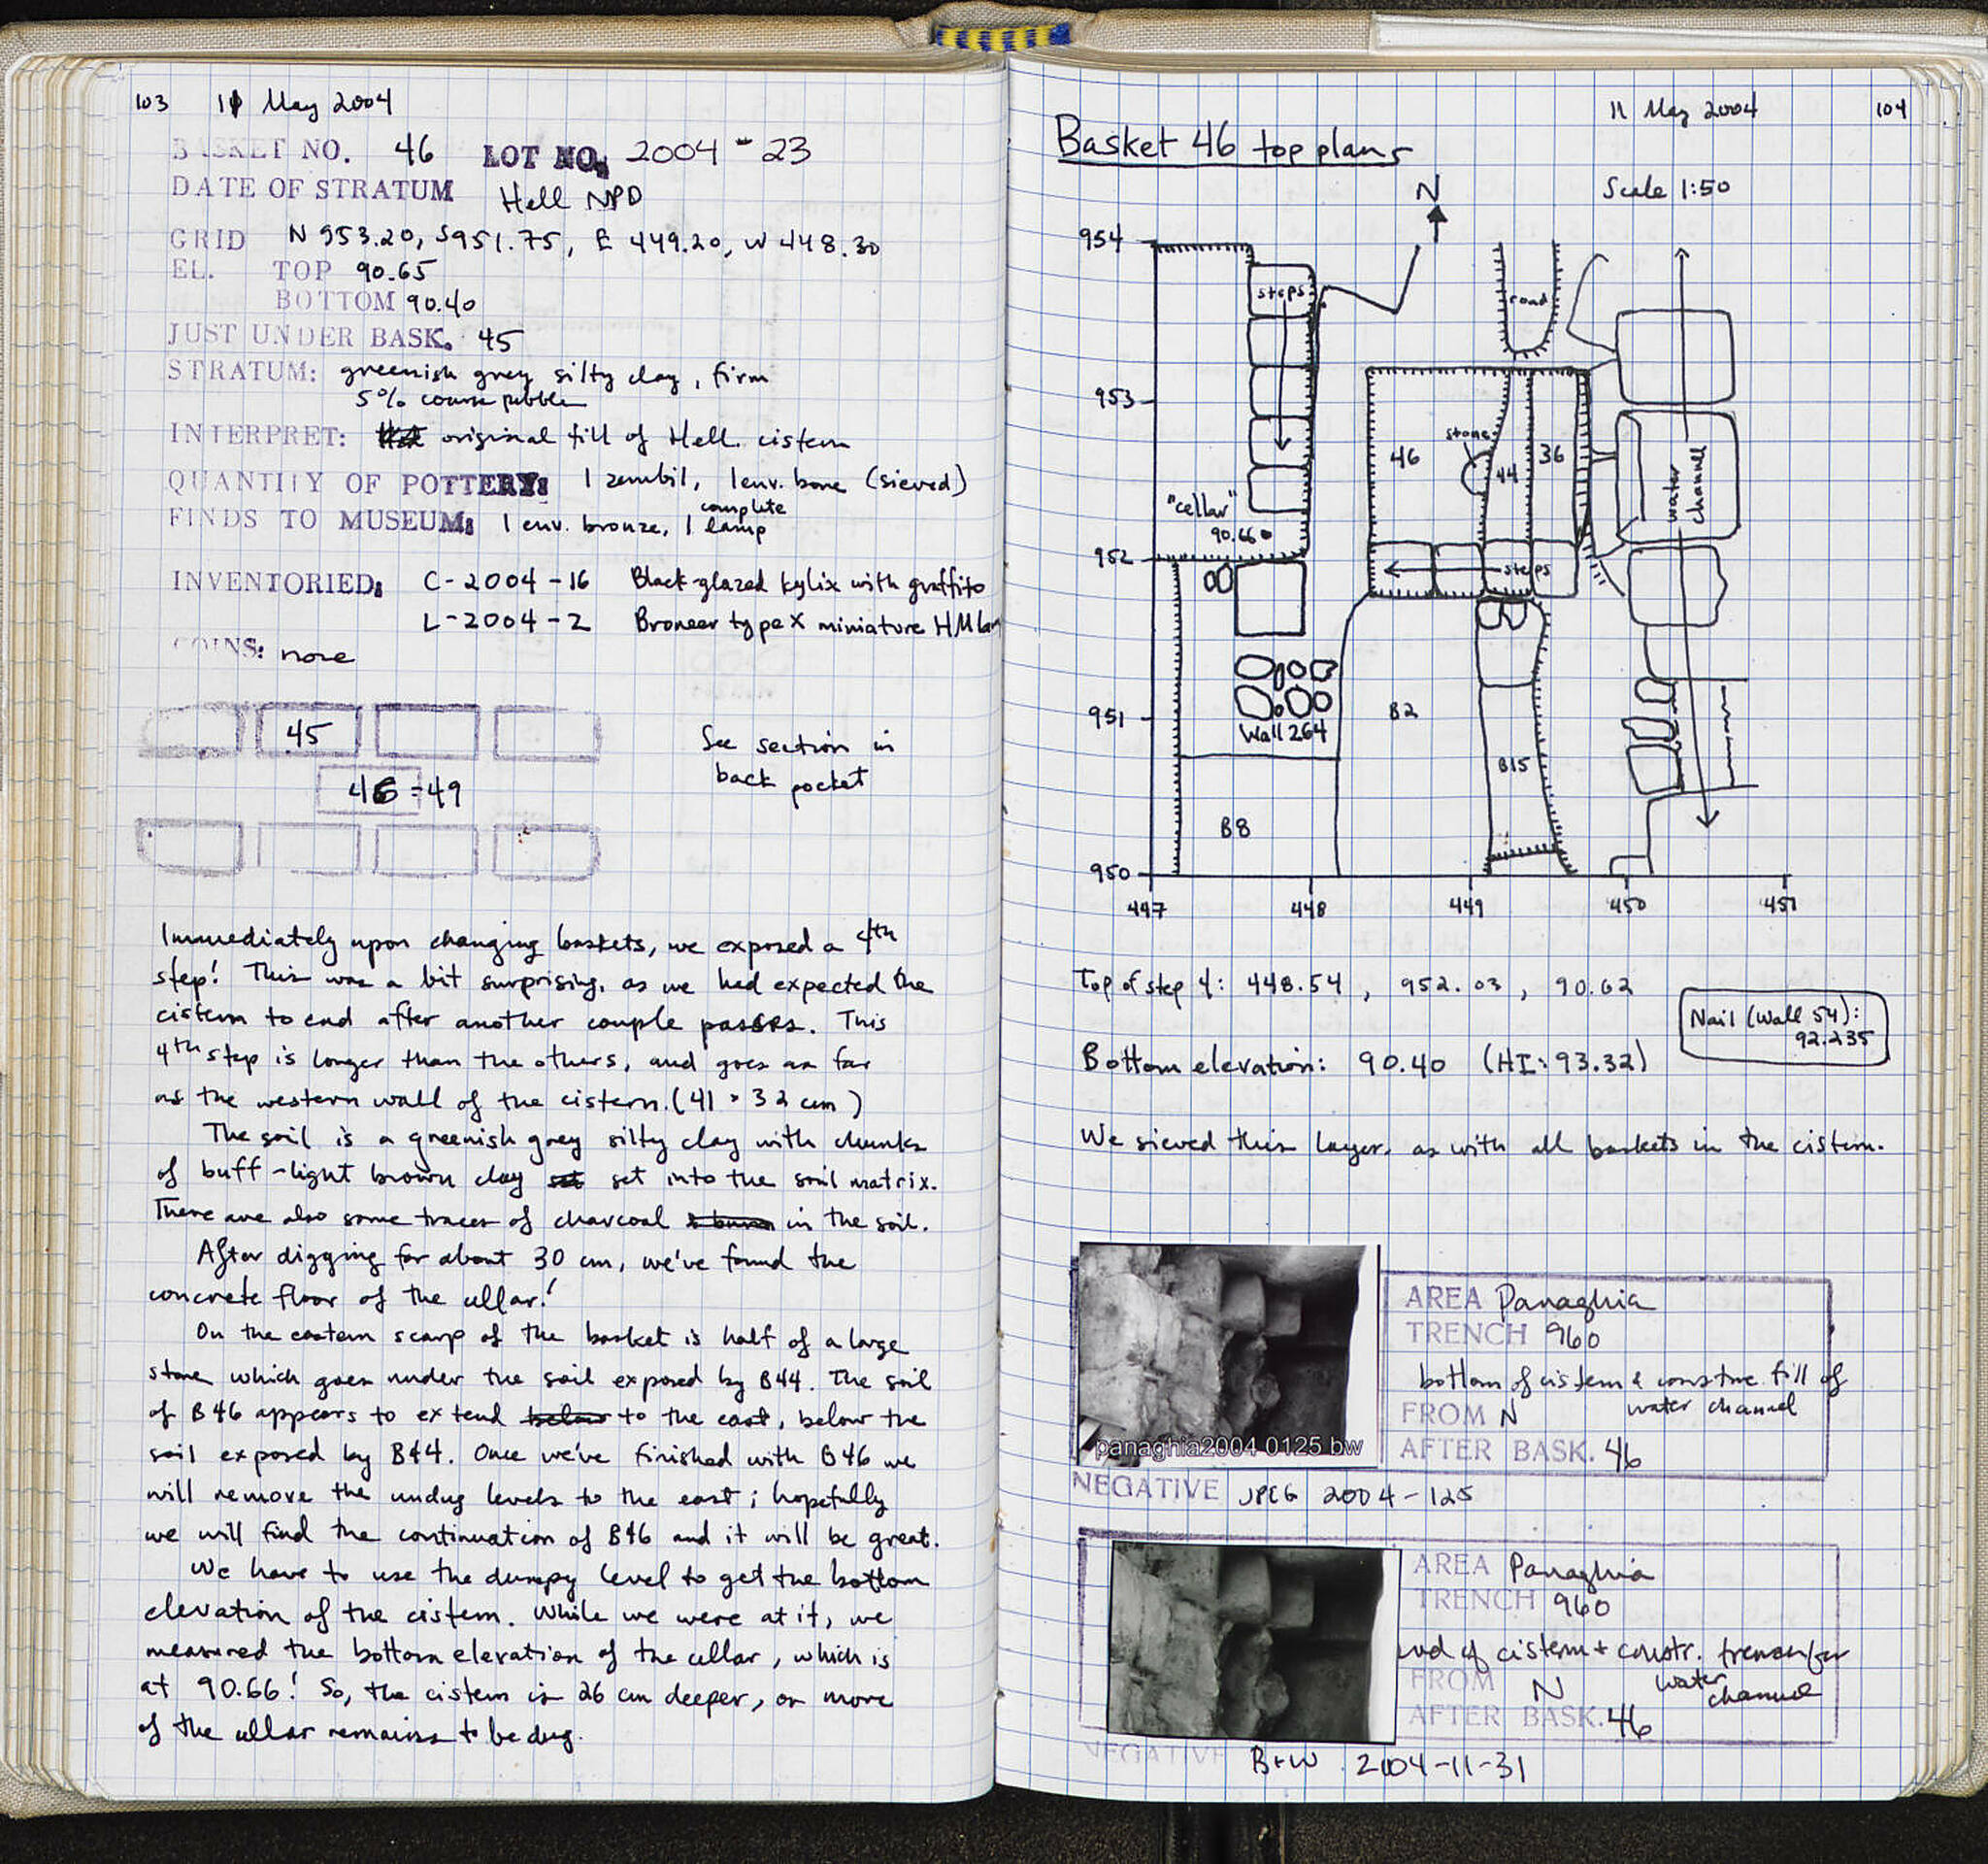 103 11 May 2004
BASKET NO. 46 LOT NO. 2004-23
DATE OF STRATUM Hell NPD
GRID N 953.20, S951.75, E 449.20, W 448.30
EL. TOP 90.65
BOTTOM 90.40
JUST UNDER BASK. 45
STRATUM: greenish grey silty clay, firm
5% coarse pebbles
INTERPRET: original fill of Hell. cistern
QUANTITY OF POTTERY: 1 zembil, 1 env. bone (sieved)
FINDS TO MUSEUM: 1 env. bronze, 1 complete lamp
INVENTORIED: C-2004-16 Black-glazed kylix with graffito
L-2004-2 Broneer type X miniature HM lamp
COINS: none
45
46=49
See section in
back pocket
Immediately upon changing baskets, we exposed a 4th
step! This was a bit surprising, as we had expected the
cistern to end after another couple passes. This
4th step is longer than the others, and goes as far
as the western wall of the cistern. (41 × 32 cm)
The soil is a greenish grey silty clay with chunks
of buff-light brown clay set into the soil matrix.
There are also some traces of charcoal in the soil.
After digging for about 30 cm, we've found the
concrete floor of the cellar!
On the eastern scarp of the basket is half of a large
stone which goes under the soil exposed by B44. The soil
of B46 appears to extend below to the east, below the
soil exposed by B44. Once we've finished with B46 we
will remove the undug levels to the east; hopefully
we will find the continuation of B46 and it will be great.
We have to use the dumpy level to get the bottom
elevation of the cistern. While we were at it, we
measured the bottom elevation of the cellar, which is
at 90.66! So, the cistern is 26 cm deeper, or more
of the cellar remains to be dug.
11 May 2004 104
Basket 46 top plans
N
Scale 1:50
954
steps
road
953
stone
46
44
36
water channel
"cellar"
90.66
952
steps
Wall 264
951
B2
B15
B8
950
447 448 449 450 451
Top of step 4: 448.54, 952.03, 90.62
Nail (Wall 54):
92.235
Bottom elevation: 90.40 (HI: 93.32)
We sieved this layer, as with all baskets in the cistern.
AREA Panaghia
TRENCH 960
bottom of cistern & constr. fill of
water channel
FROM N
AFTER BASK. 46
panaghia2004 0125 bw
NEGATIVE JPEG 2004-125
AREA Panaghia
TRENCH 960
end of cistern + constr. trench for
water channel
FROM N
AFTER BASK. 46
NEGATIVE B+W 2004-11-31